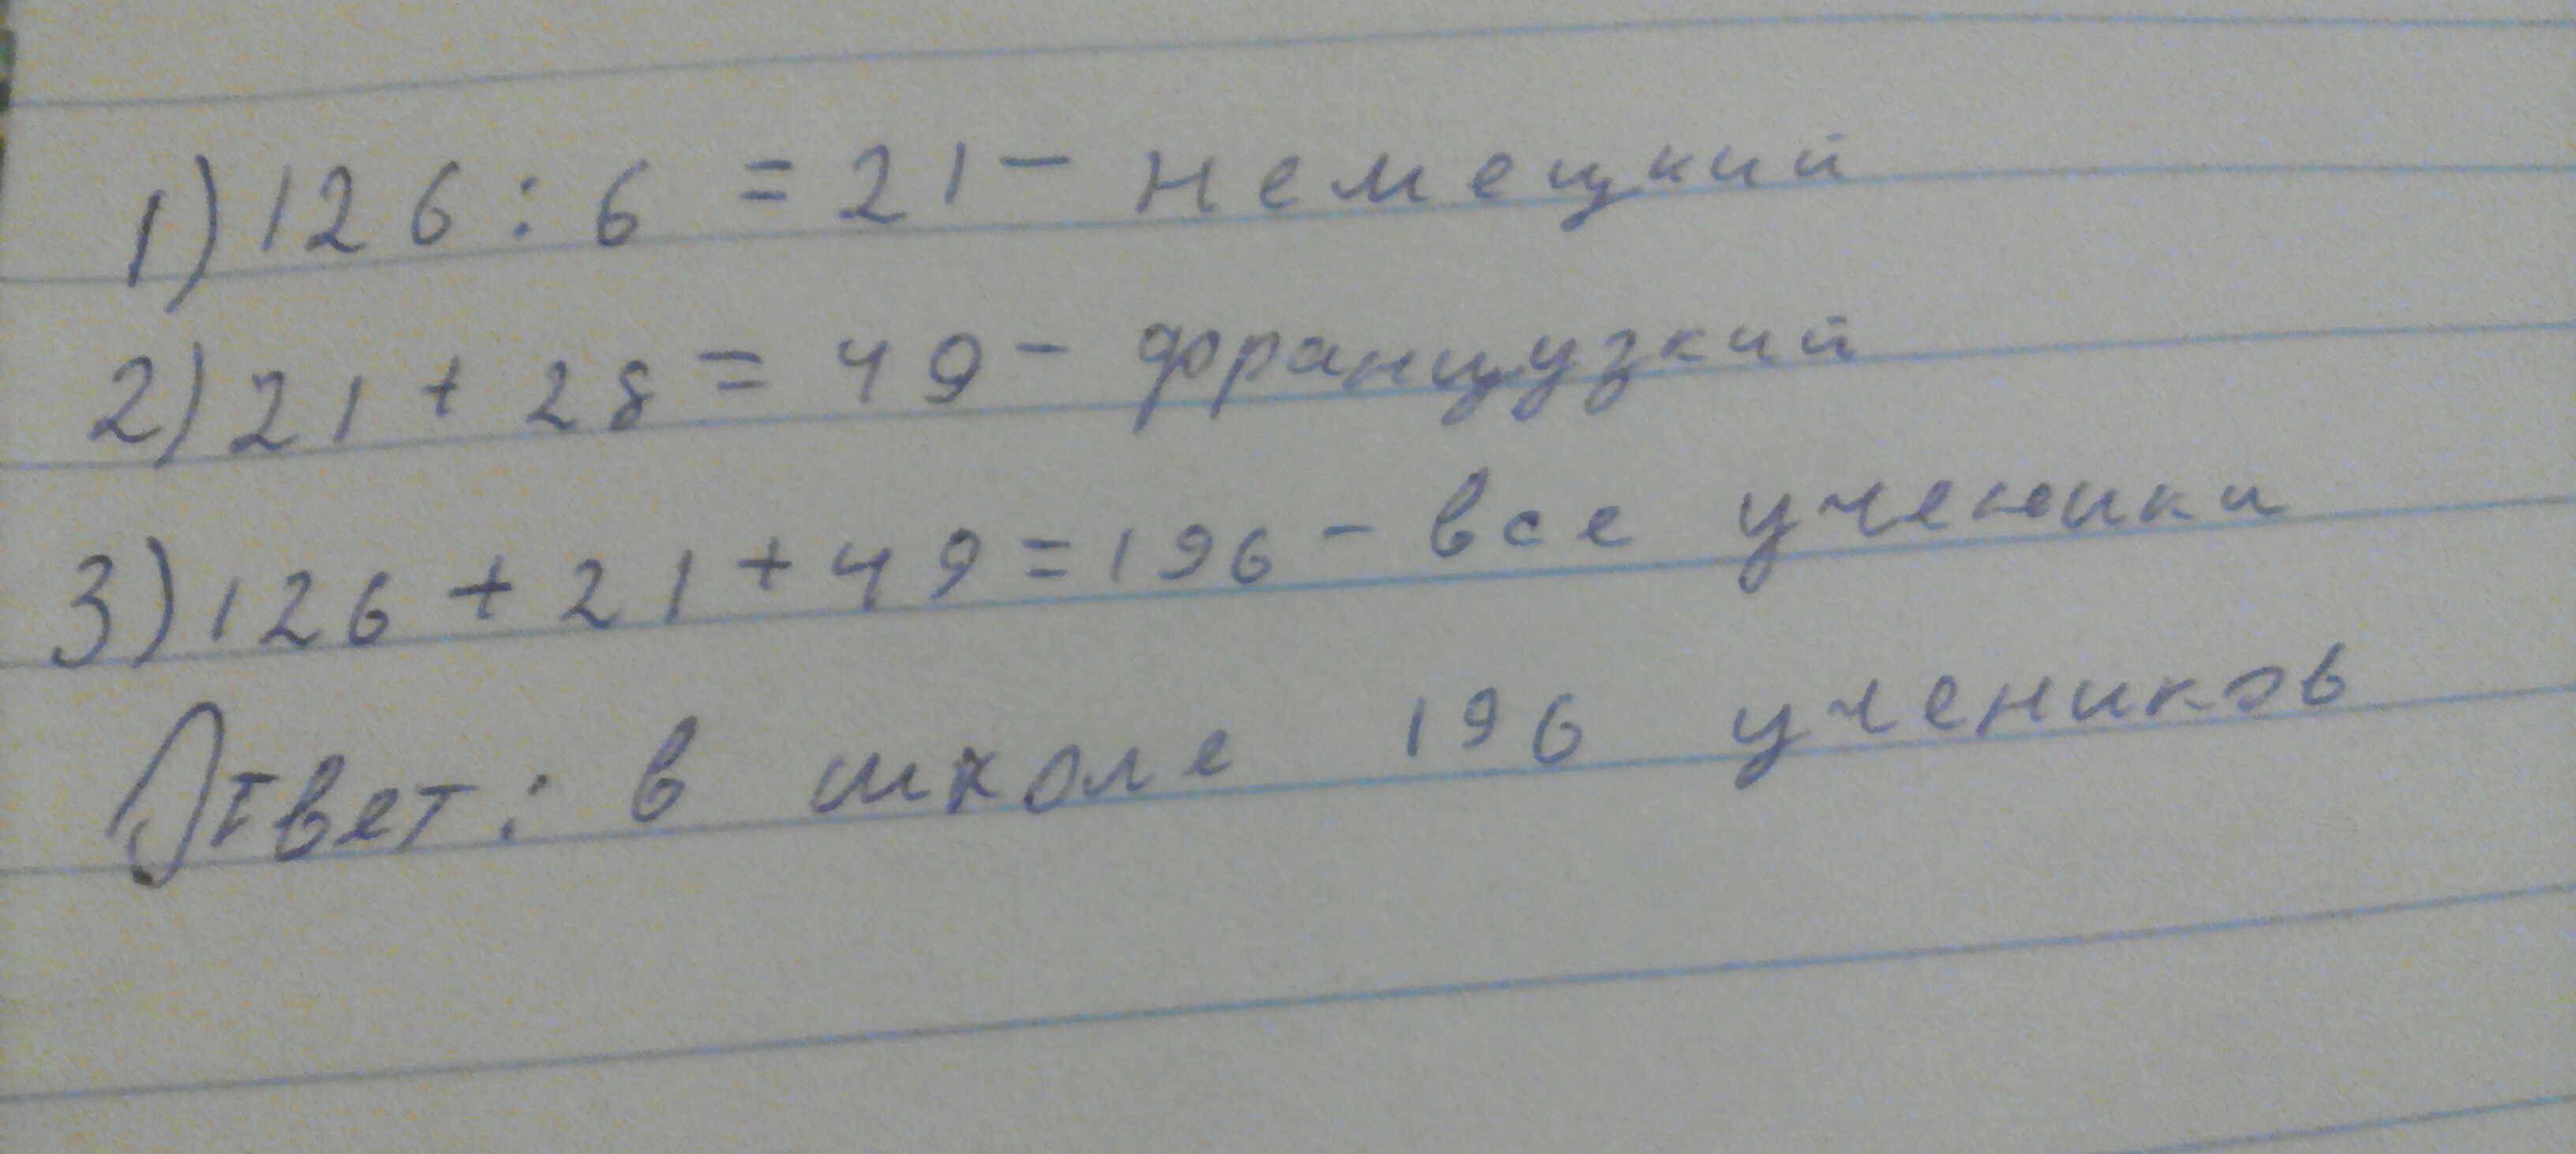 1) 126 : 6 = 21 - немецкий
2) 21 + 28 = 49 - французкий
3) 126 + 21 + 49 = 196 - все ученики
Ответ: в школе 196 учеников